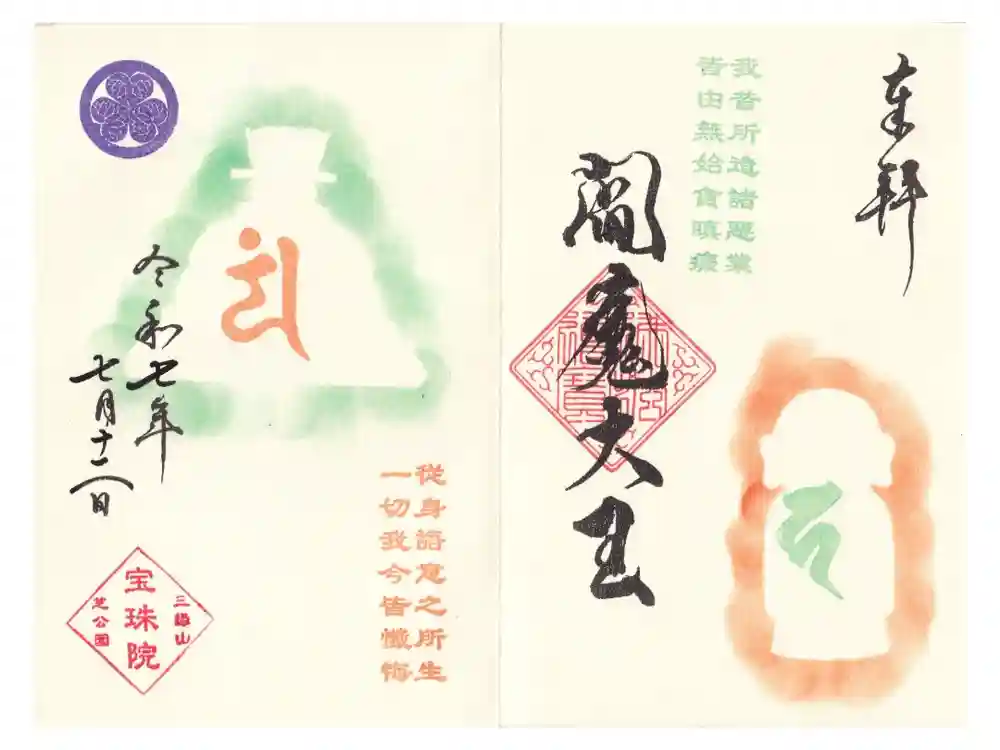 奉拝
我昔所造諸悪業
皆由無始貪瞋癡
閻魔大王
従身語意之所生
一切我今皆懺悔
令和七年
七月十二日
三縁山
宝珠院
芝公園